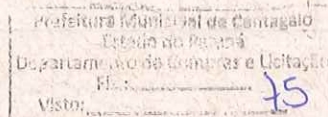 Prefeitura Municipal de Cantagalo
Estado do Paraná
Departamento de Compras e Licitação
Fls.: 75
Visto: